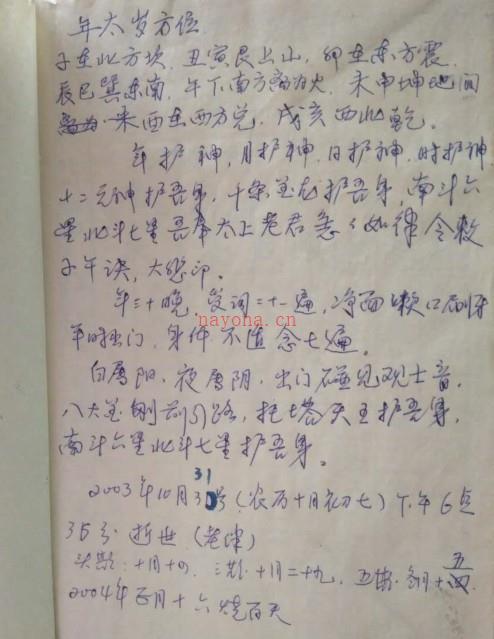 年太岁方位
子在北方坎. 丑寅艮上山, 卯在东方震.
辰巳巽东南, 午下南方离为火, 未申坤地间
酉在西方兑, 戌亥西北乾.
年护神, 月护神, 日护神, 时护神
十二元神护吾身, 千条金龙护吾身, 南斗六
星北斗七星吾奉太上老君急急如律令敕
子午诀, 大悲印.
年三十晚, 念词二十一遍, 净面漱口刷牙
平时出门, 身体不适念七遍.
白属阳, 夜属阴, 出门碰见观士音,
八大金刚前引路, 托塔天王护吾身,
南斗六星北斗七星护吾身.
2003年10月31号(农历十月初七)下午6点
35分逝世(老律)
头期: 十月十四, 三期, 十月二十九, 五期. 冬月十五
2004年正月十六烧百天
nayona.cn